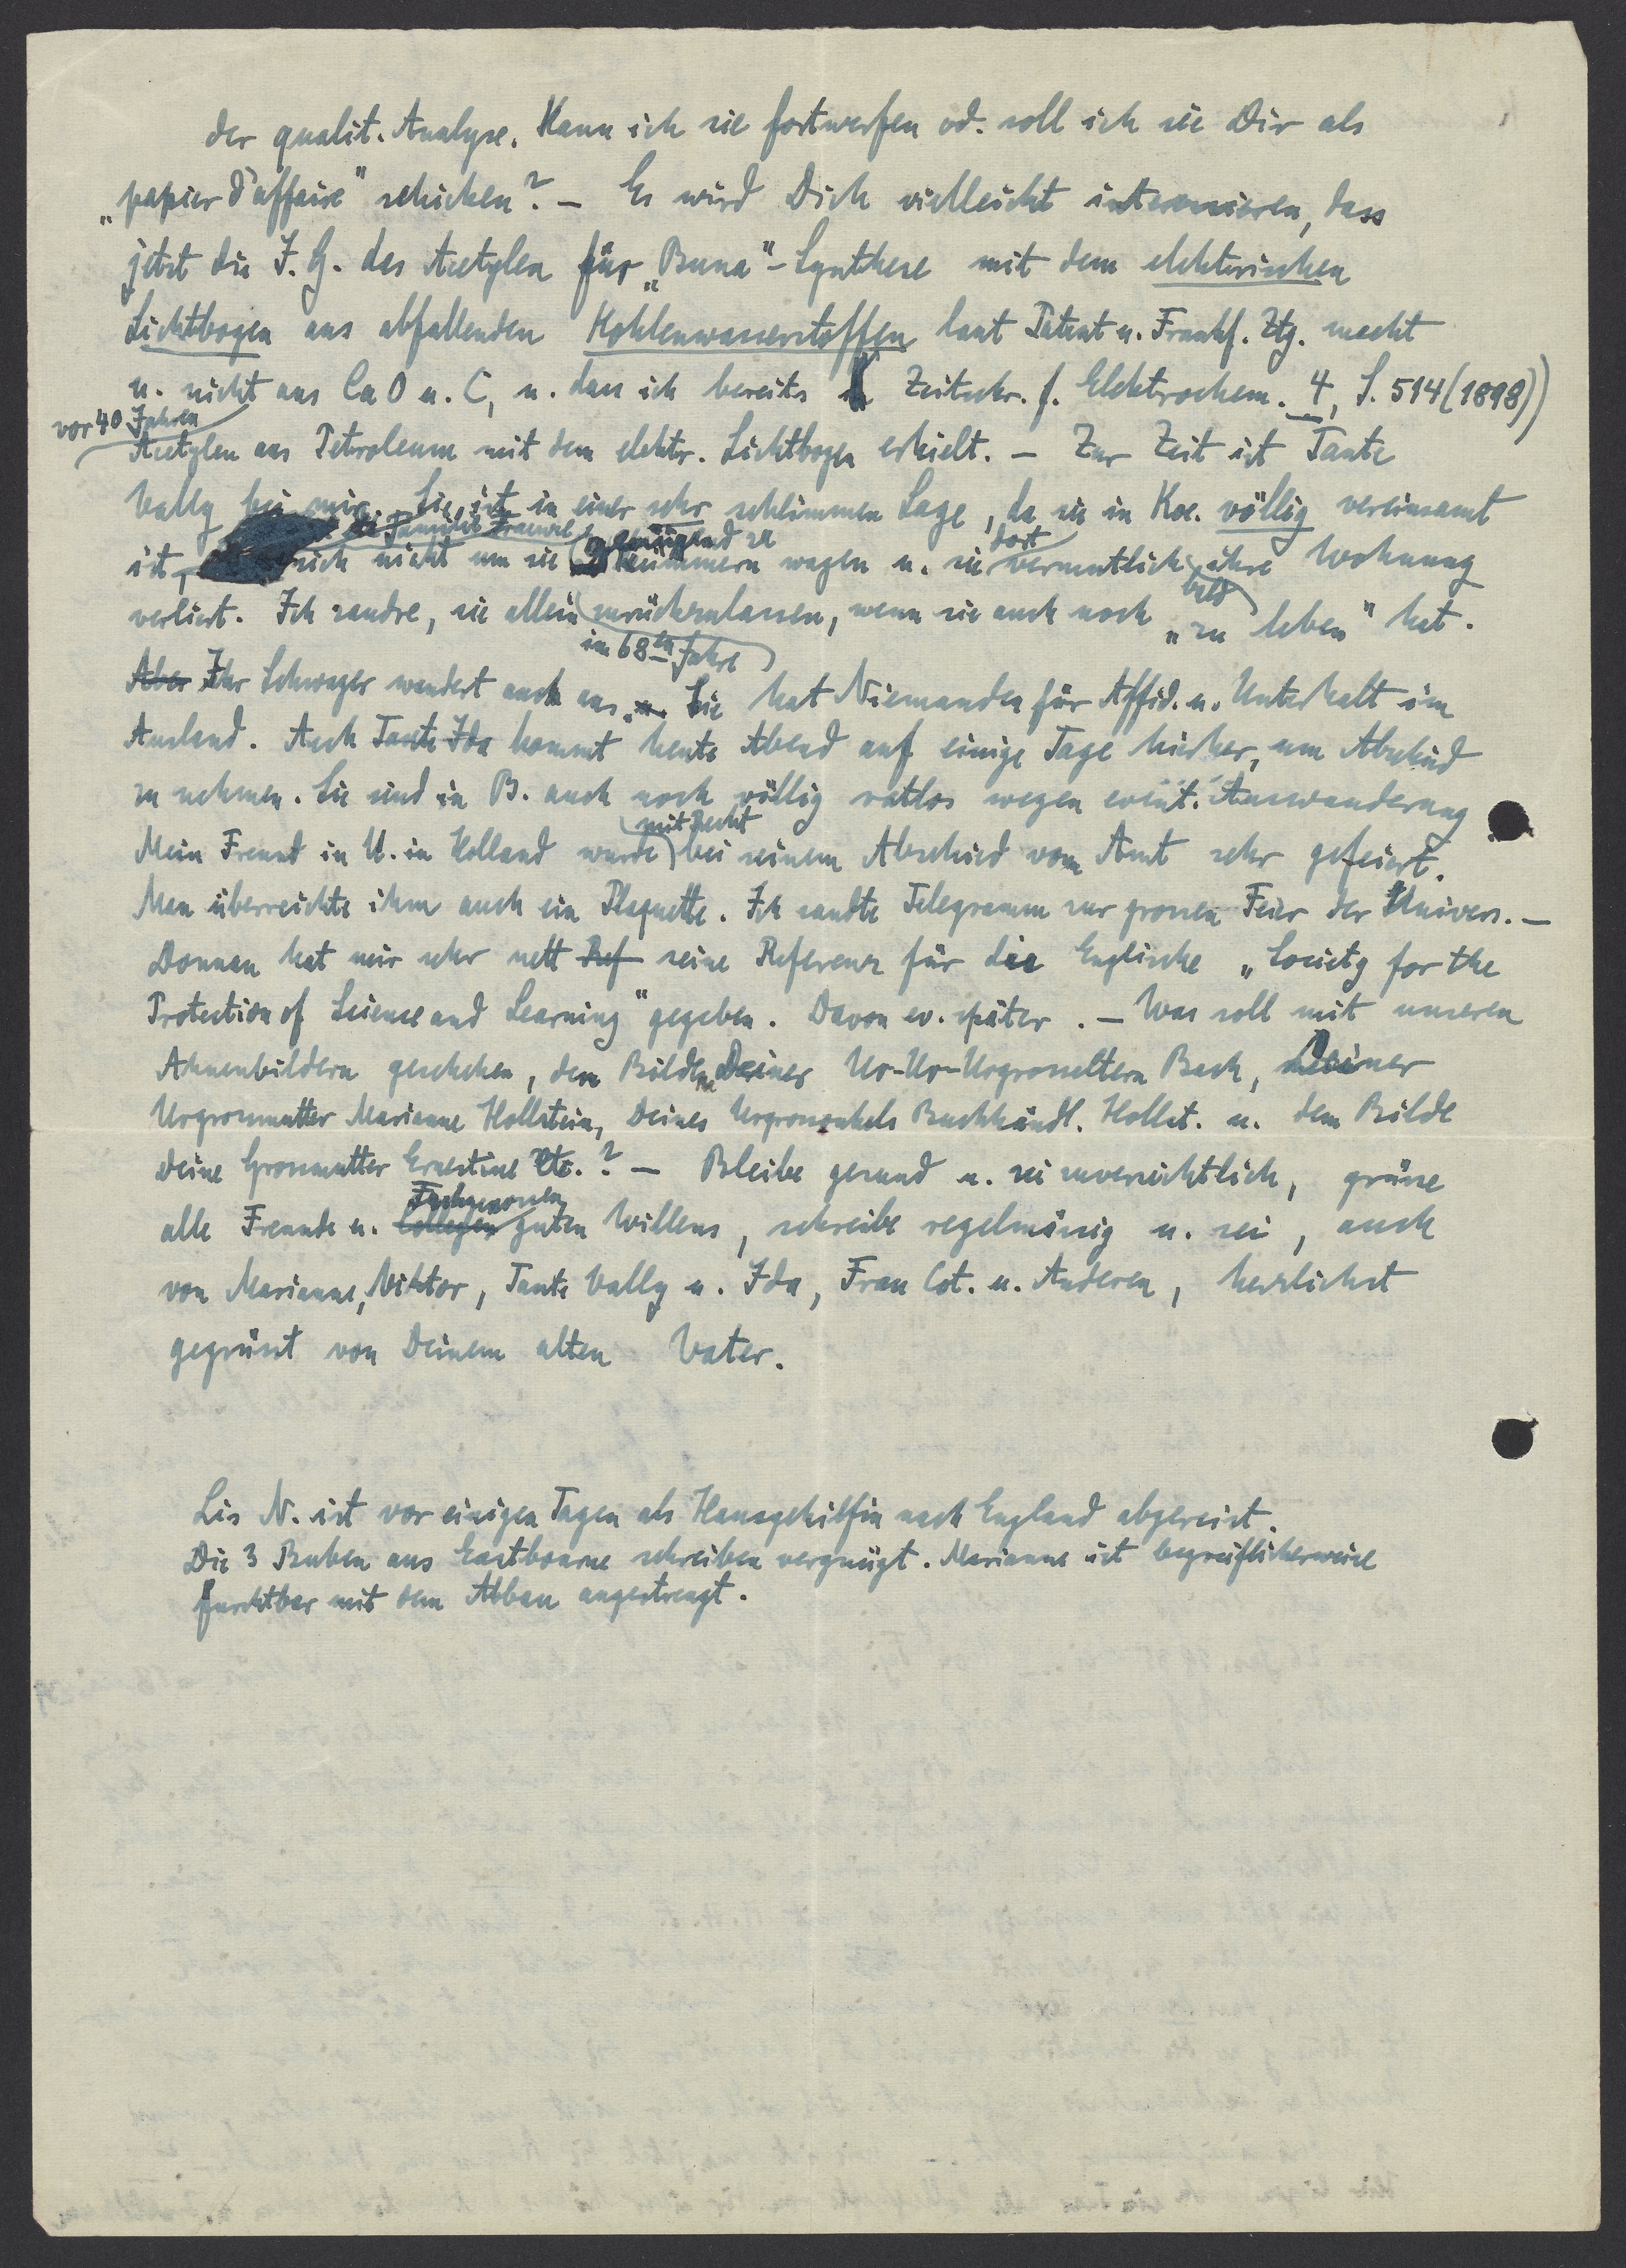 der qualit. Analyse. Kann ich sie fortwerfen od. soll ich sie Dir als
„papier d'affaire" schicken? – Es wird Dich vielleicht interessieren, dass
jetzt die I. G. das Acetylen für „Buna"-Synthese mit dem elektrischen
Lichtbogen aus abfallenden Kohlenwasserstoffen laut Patent u. Frankf. Ztg. macht
u. nicht aus CaO u. C, u. dass ich bereits Zeitschr. f. Elektrochem. 4, S. 514 (1898))
vor 40 Jahren
Acetylen aus Petroleum mit dem elektr. Lichtbogen erhielt. – Zur Zeit ist Tante
Vally bei mir. Sie ist in einer sehr schlimmen Lage, da sie in Koe. völlig vereinsamt
die Familie genügend zu dort
ist, sich nicht um sie kümmern wagen u. sie vermutlich ihre Wohnung
bald
verliert. Ich zaudre, sie allein zurückzulassen, wenn sie auch noch „zu leben" hat.
im 68ten Jahre
Aber Ihr Schwager wandert auch aus. u. Sie hat Niemanden für Affid. u. Unterhalt im
Ausland. Auch Tante Ida kommt heute Abend auf einige Tage hierher, um Abschied
zu nehmen. Sie sind in B. auch noch völlig ratlos wegen event. Auswanderung
mit Recht
Mein Freund in U. in Holland wurde bei seinem Abschied vom Amt sehr gefeiert.
Man überreichte ihm auch ein Plaquette. Ich sandte Telegramm zur grossen Feier der Univers. –
Donnan hat mir sehr nett Ref seine Referenz für die Englische „Society for the
Protection of Science and Learning" gegeben. Davon ev. später. – Was soll mit unseren
Ahnenbildern geschehen, den Bildern Deiner Ur-Ur-Urgrosseltern Bach, Deiner
Urgrossmutter Marianne Hollstein, Deines Urgrossonkels Buchhändl. Hollst. u. dem Bilde
Deine Grossmutter Ernestine etc.? – Bleibe gesund u. sei zuversichtlich, grüsse
Fachgenossen
alle Freunde u. Collegen guten Willens, schreibe regelmässig u. sei, auch
von Marianne, Viktor, Tante Vally u. Ida, Frau Cot. u. Anderen, herzlichst
gegrüsst von Deinem alten Vater.
Lis N. ist vor einigen Tagen als Hausgehilfin nach England abgereist.
Die 3 Buben aus Eastbourne schreiben vergnügt. Marianne ist begreiflicherweise
furchtbar mit dem Abbau angestrengt.